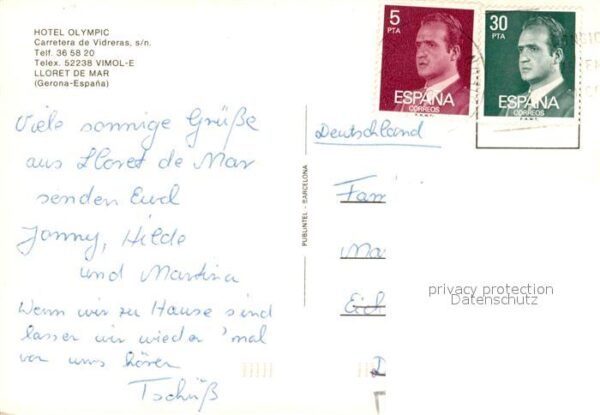 HOTEL OLYMPIC
Carretera de Vidreras, s/n.
Telf. 36 58 20
Telex. 52238 VIMOL-E
LLORET DE MAR
(Gerona-España)
Viele sonnige Grüße
aus Lloret de Mar
senden Euch
Jonny, Hilde
und Martina
Wenn wir zu Hause sind
lasser wir wieder 'mal
von uns hören
Tschüß
PUBLINTEL - BARCELONA
5
PTA
ESPAÑA
CORREOS
F.N.M.T.
30
PTA
ESPAÑA
CORREOS
F.N.M.T.
Deutschland
Fam
Ma
Eich
D
privacy protection
Datenschutz